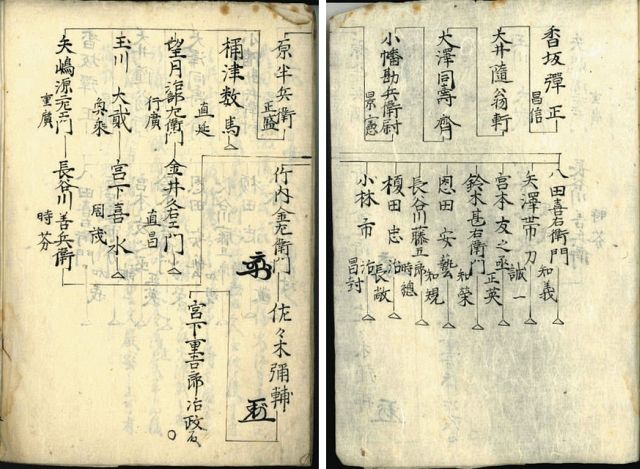 香坂彈正 昌信
大井隨翁軒
大澤同壽齊
小幡勘兵衛尉 景憲
八田喜右衛門 知義
矢澤帯刀 誠一
宮本友之丞 正英
鈴木甚右衛門 知榮
恩田安藝 知規
長谷川藤五郎 時總
榎田忠治 長敞
小林市治 昌封
原半兵衛 正盛
桶津数馬 直延
望月治郎左衛門 行廣
玉川大貳
矢嶋源左衛門 重廣
竹内金左衛門
金井久右衛門 直昌
宮下喜水
長谷川善兵衛 時芬
佐々木彌輔
宮下重吉郎治政